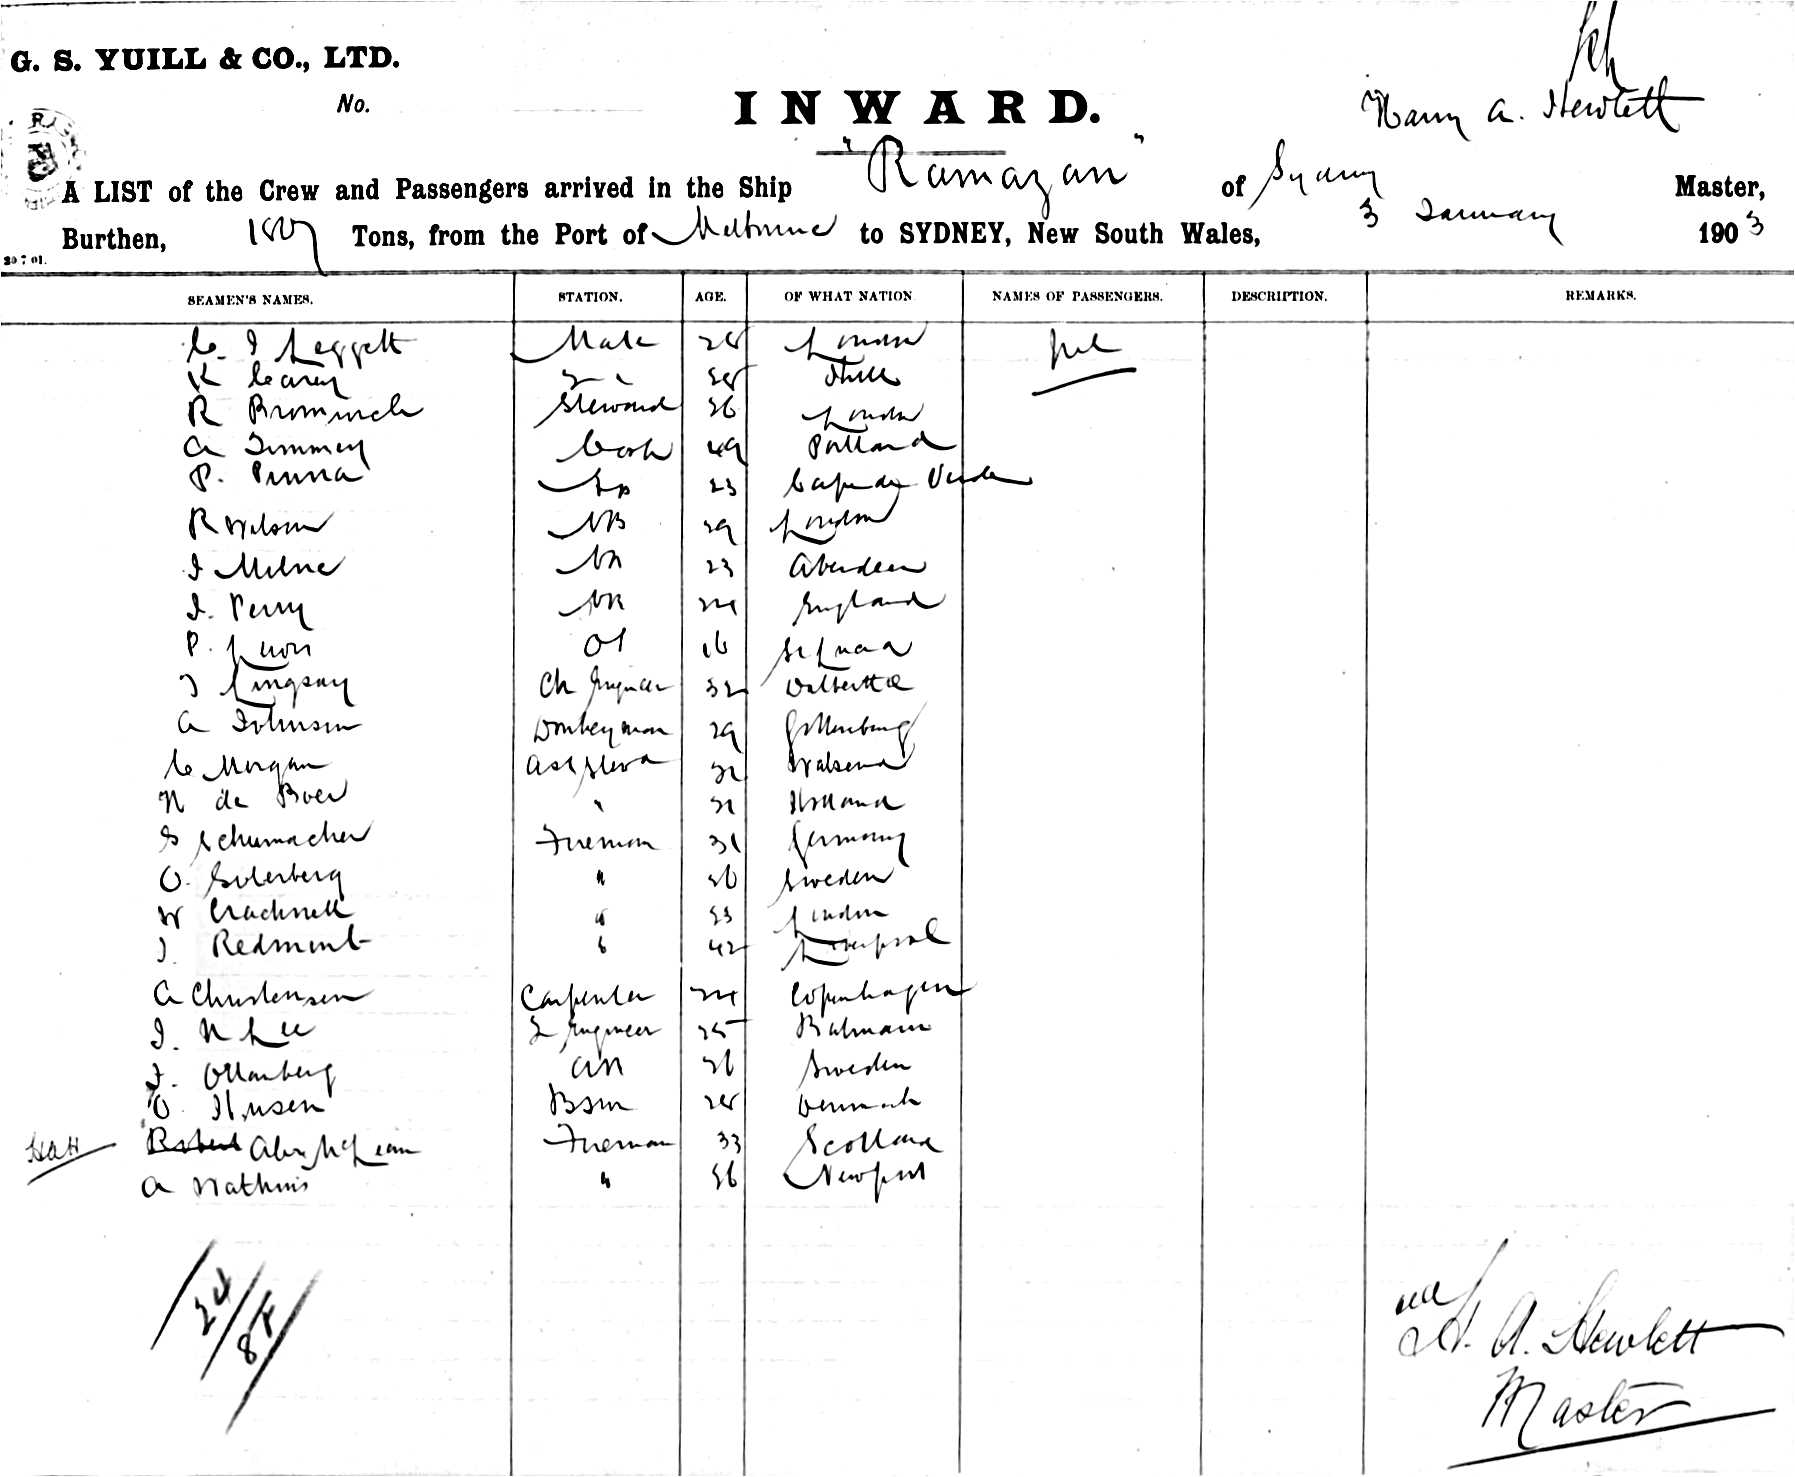 G. S. YUILL & CO., LTD.
No.
INWARD.
Harry A. Hewlett
A LIST of the Crew and Passengers arrived in the Ship "Ramazan" of Sydney Master,
Burthen, 1807 Tons, from the Port of Melbourne to SYDNEY, New South Wales, 3 January 1903
20 7 01.
SEAMEN'S NAMES. STATION. AGE. OF WHAT NATION NAMES OF PASSENGERS. DESCRIPTION. REMARKS.
C. J Leggett Mate 28 London Nil
K Carey 2 28 Hull
R Bromwich Steward 36 London
A Timmey Cook 49 Portland
P. Pinna 23 Cape de Verde
R Wilson AB 29 London
J Milne AB 23 Aberdeen
J. Perry AB 24 England
P. Luon OS 16 St Lucia
J Lingsay Ch Engineer 32
A Johnson Donkeyman 29 Gothenburg
C Morgan Asst Steward 32 Walsend
N de Boer " 31 Holland
S Schumacher Fireman 31 Germany
O. Soderberg " 36 Sweden
W Cracknell " 33 London
J. Redmond " 42 Liverpool
A Christensen Carpenter 24 Copenhagen
J. N Lee 2 Engineer 25 Balmain
J. Ottanberg AB 36 Sweden
O. Hansen Bsm 28 Denmark
HAH Robert Alex McLean Fireman 33 Scotland
A Watkins " 36 Newport
24
8
H. A. Hewlett
Master